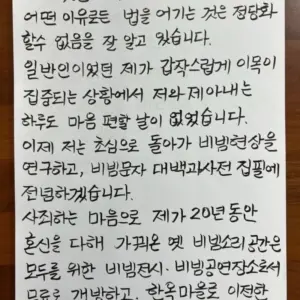 어떤 이유로든 법을 어기는 것은 정당화
할수 없음을 잘 알고 있습니다.
일반인이었던 제가 갑작스럽게 이목이
집중되는 상황에서 저와 제아내는
하루도 마음 편할 날이 없었습니다.
이제 저는 초심으로 돌아가 비빔현장을
연구하고, 비빔문자 대백과사전 집필에
전념하겠습니다.
사죄하는 마음으로 제가 20년동안
혼신을 다해 가꿔온 옛 비빔소리공간은
모두를 위한 비빔전시·비빔공연장소로서
무료로 개방하고, 한옥마을로 이전한